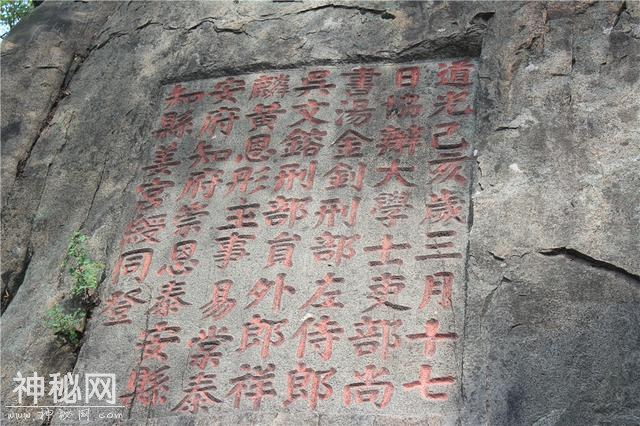 道光己亥歲三月十七
日協辦大學士吏部尚
書湯金釗刑部左侍郎
吳文鎔刑部員外郎祥
麟黃恩彤主事易棠泰
安府知府蒙恩泰安縣
知縣姜宮綬同登
神秘网